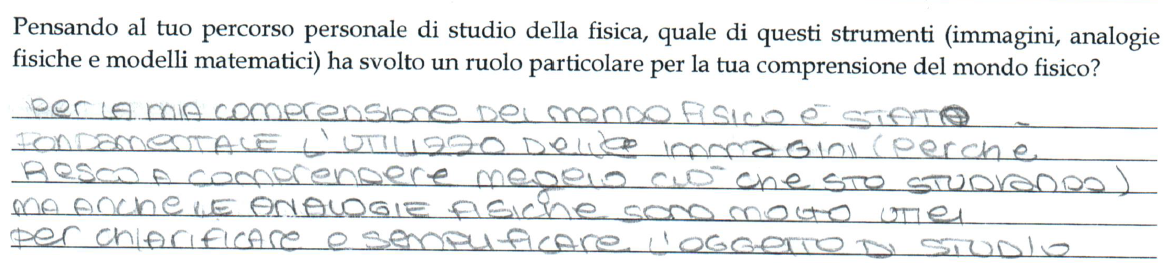 Pensando al tuo percorso personale di studio della fisica, quale di questi strumenti (immagini, analogie
fisiche e modelli matematici) ha svolto un ruolo particolare per la tua comprensione del mondo fisico?
Per la mia comprensione del mondo fisico è stato
fondamentale l'utilizzo delle immagini (perche
riesco a comprendere meglio ciò che sto studiando)
ma anche le analogie fisiche sono molto utili
per chiarificare e semplificare l'oggetto di studio